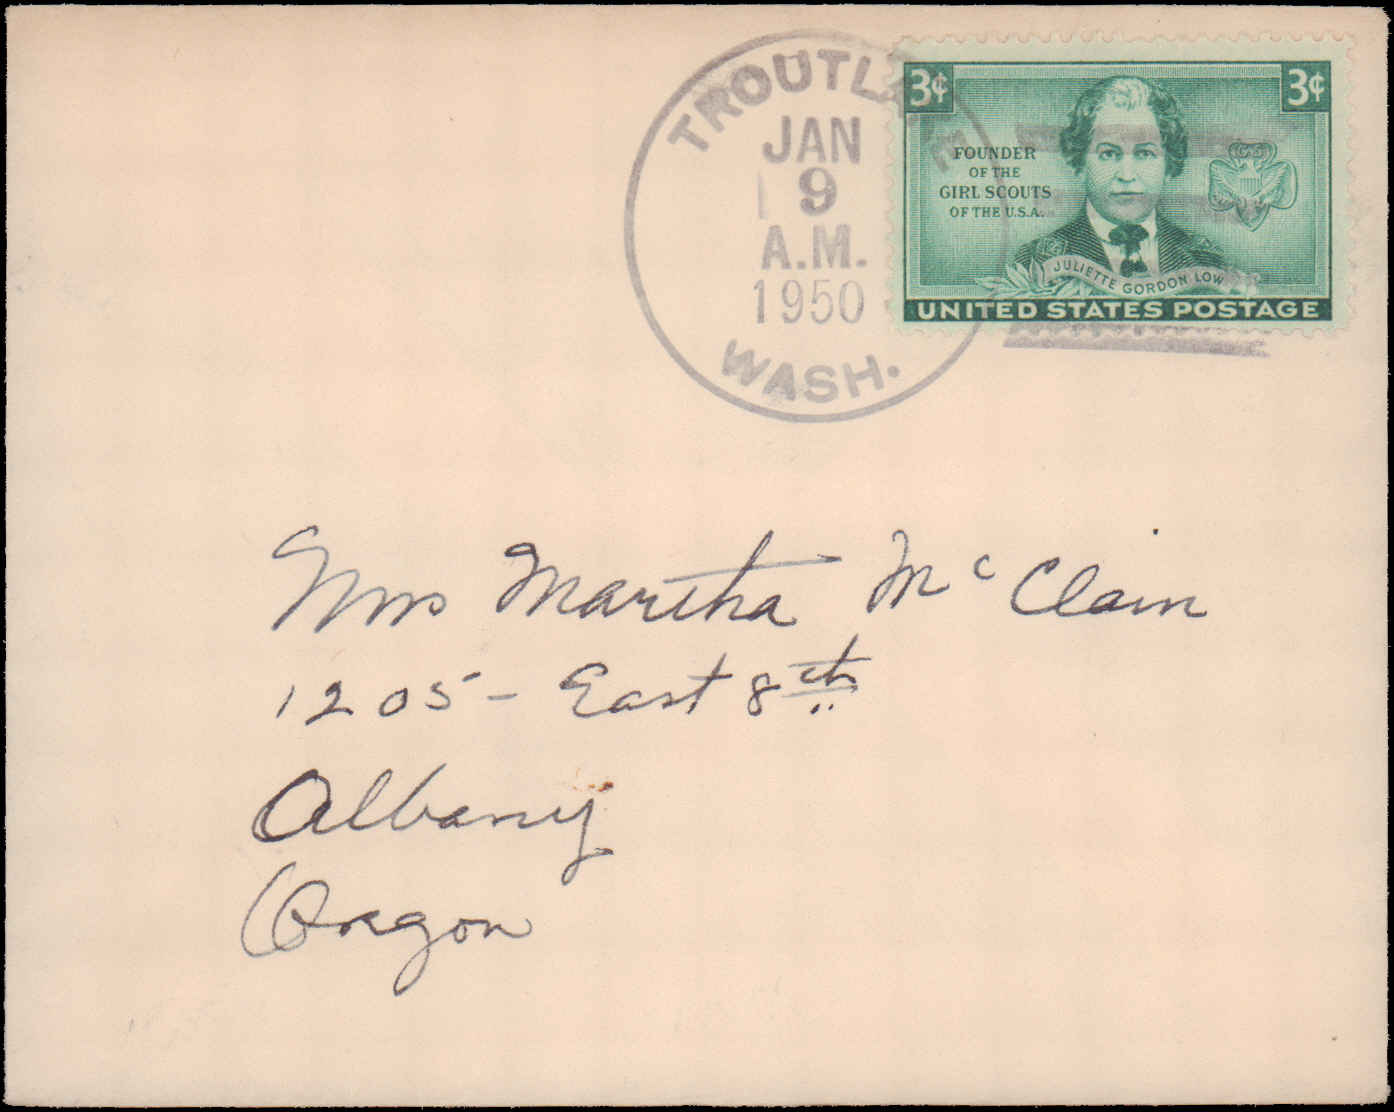 TROUTLAKE
JAN
9
A.M.
1950
WASH.
3¢
3¢
FOUNDER
OF THE
GIRL SCOUTS
OF THE U.S.A.
GS
JULIETTE GORDON LOW
UNITED STATES POSTAGE
Mrs Martha Mc Clain
1205 - East 8th
Albany
Oregon